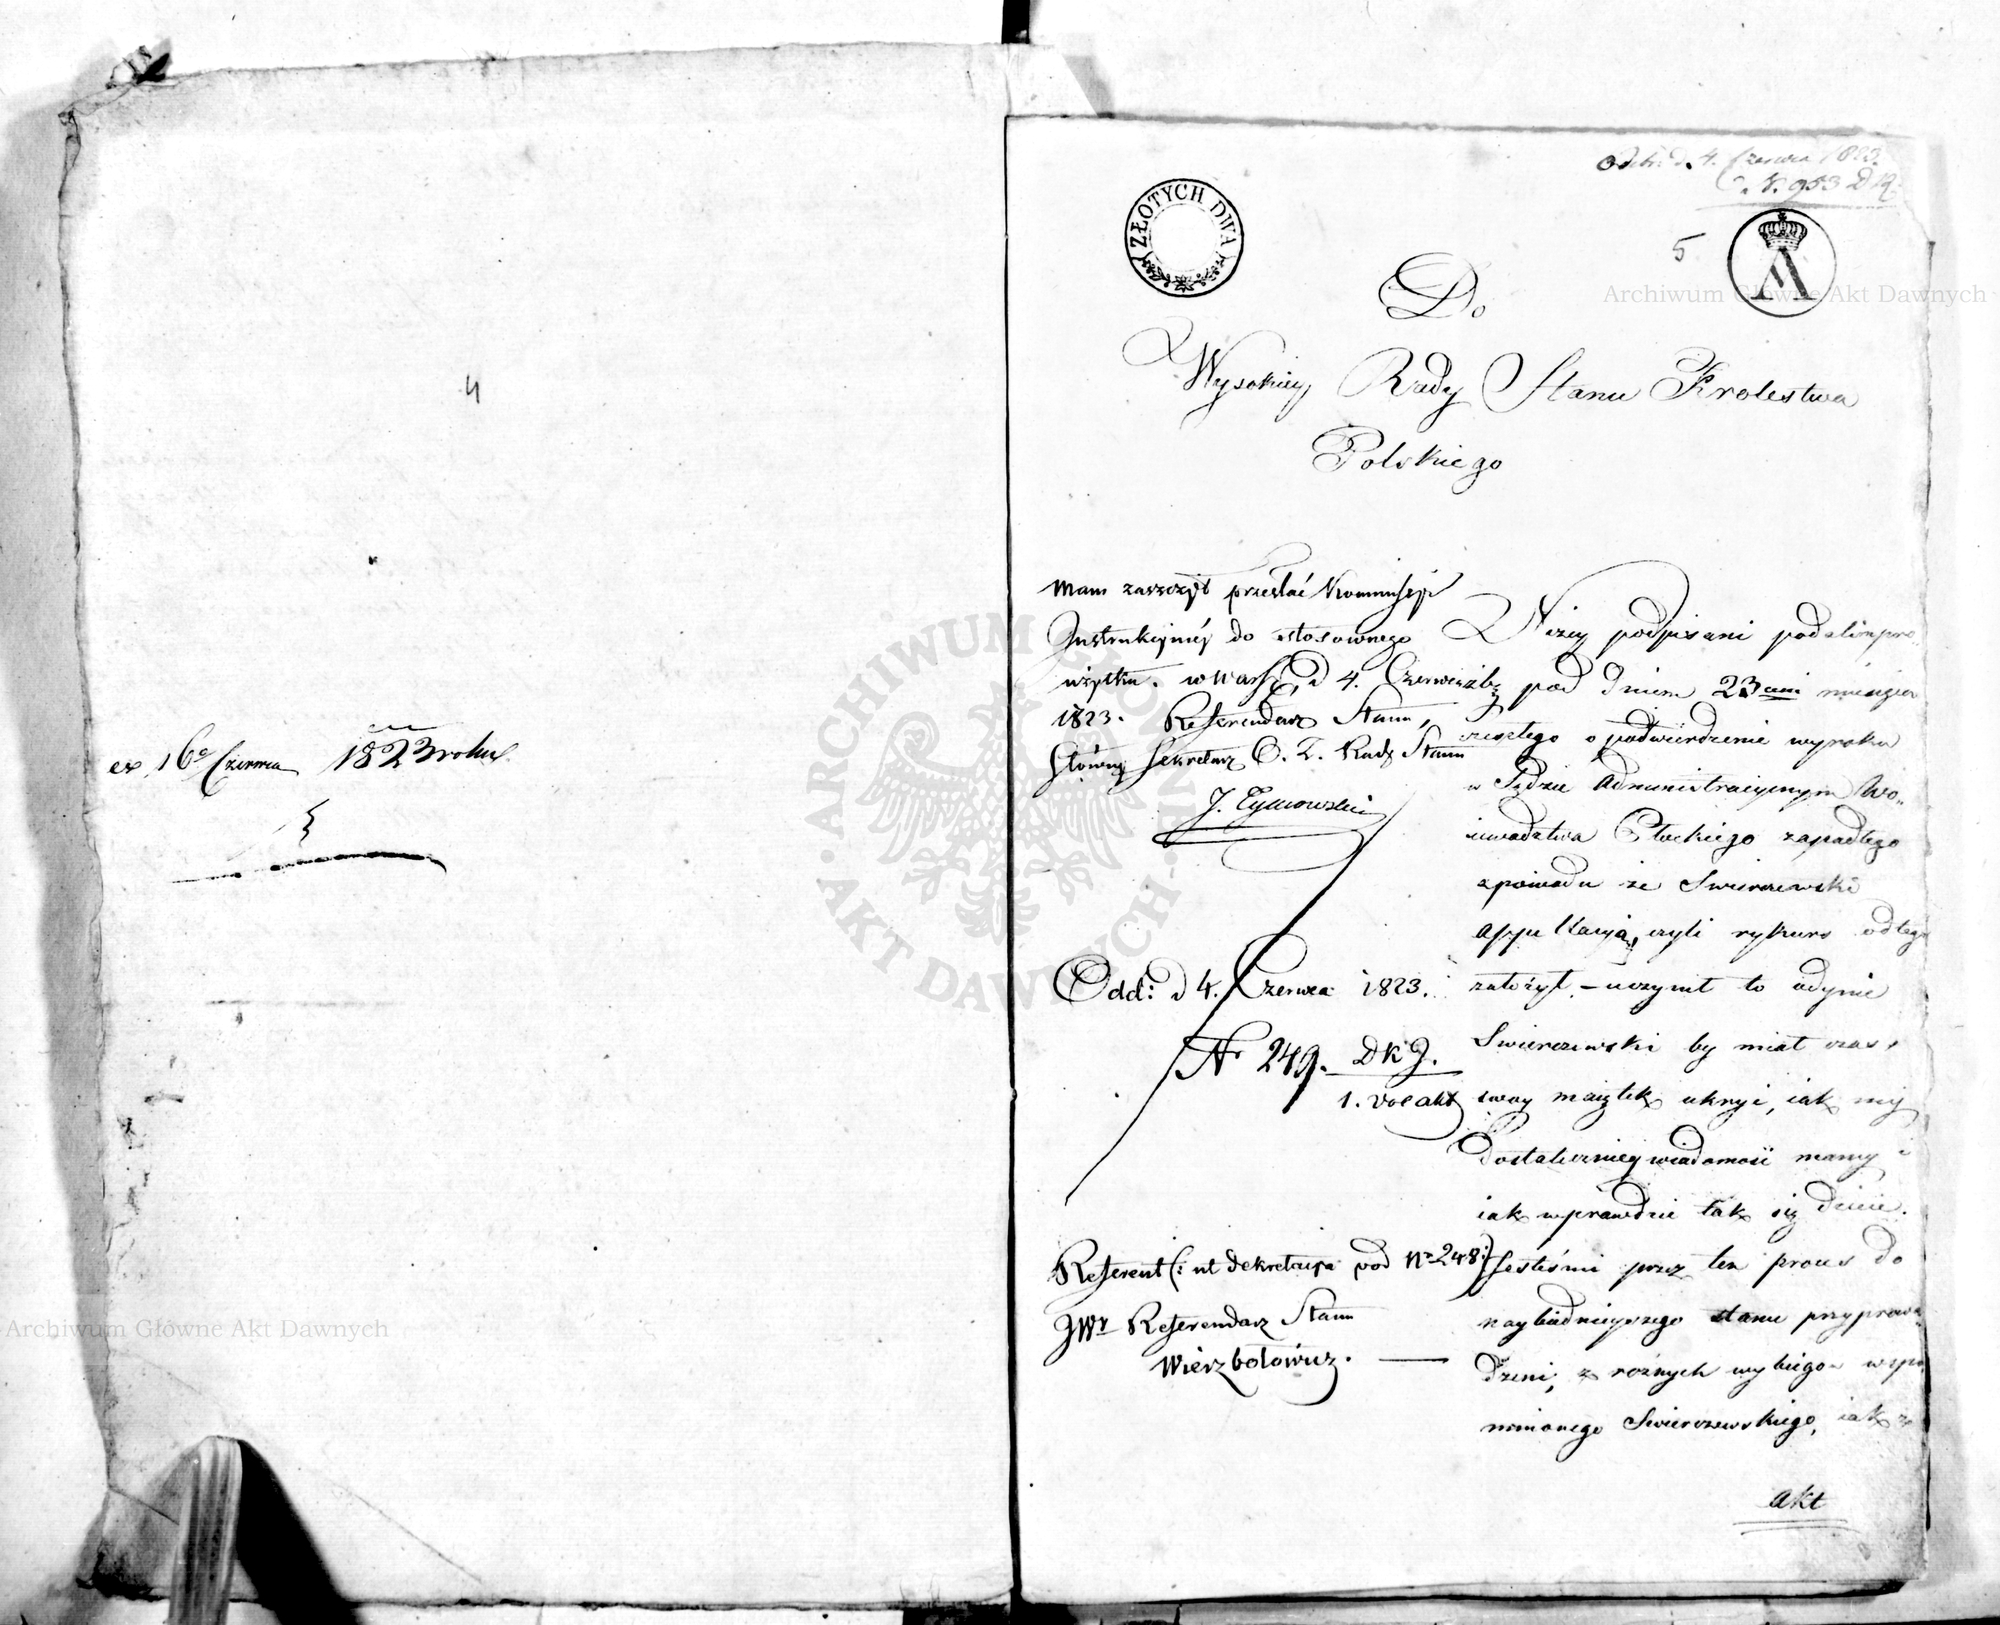 4
ex 16a Czerwca 1823 roku
Odebr. d. 4. Czerwca 1823.
N. 953
ZŁOTYCH DWA
5
A
Do
Wysokiey Rady Stanu Krolestwa
Polskiego
Mam zaszczyt przesłać Kommissyi
Instrukcyinéy do stosownego
użytku. w Warsz. d 4. Czerwca
1823. Referendarz Stanu,
Główny Sekretarz Rady Stanu
J. Tymowski
Odd: d 4. Czerwca 1823.
Nr 249. DKJ.
1. vol akt
Referent (: ut dekretacya pod Nr 248:)
JWy Referendarz Stanu
Wierzbołowicz.
Niżey podpisani podali
pod dniem 23cim miesiąca
zeszłego o podwierdzenie wyroku
w Sądzie Administracyinym Wo-
iewodztwa Płockiego zapadłego
zpowodu że Swierczewski
appellacyią, czyli rykurs od tego
założył. - uczynił to iedynie
Swierczewski by miał czas,
swoy maiątek ukryć, iak my
dostateczniey wiadomość mamy i
iak wprawdzie tak się dzieie.
Jesteśmi przez ten proces do
naybiednieyszego stanu przyprowa-
dzeni, z rożnych wybiegow wspo-
mnionego Swierczewskiego, iak
akt
Archiwum Główne Akt Dawnych
Archiwum Główne Akt Dawnych
ARCHIWUM GŁÓWNE AKT DAWNYCH